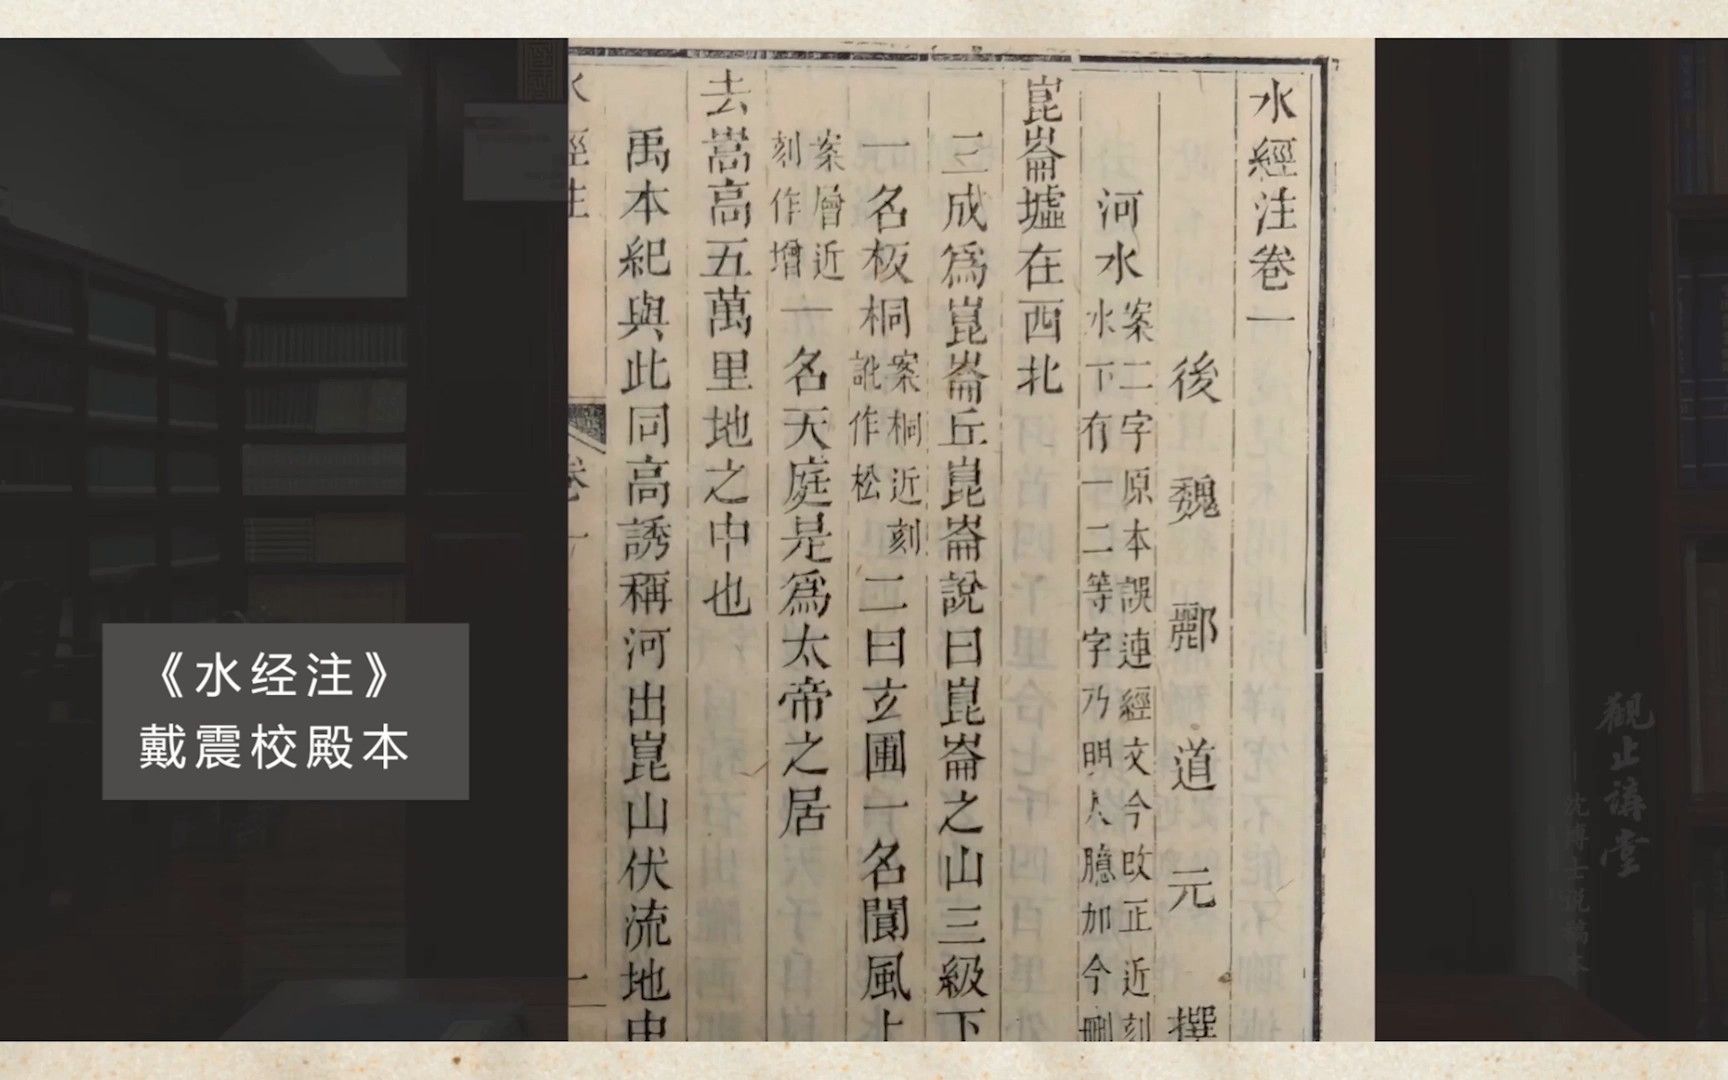 水經注卷一
後魏酈道元撰
河水案二字原本誤連經文今改正近刻
水下有一二等字乃明人臆加今刪
崑崙墟在西北
三成爲崑崙丘崑崙說曰崑崙之山三級下
一名板桐案桐近刻訛作松二曰玄圃一名閬風上
案層近刻作增一名天庭是爲太帝之居
去嵩高五萬里地之中也
禹本紀與此同高誘稱河出崑山伏流地中
水經注 卷一 一
《水经注》
戴震校殿本
觀止講堂